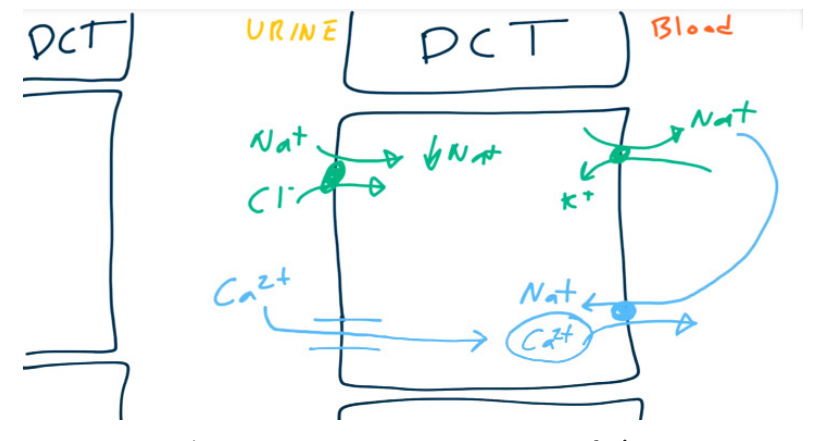 DCT
URINE
DCT
Blood
Na+
↓Na+
Na+
Cl-
K+
Ca2+
Na+
Ca2+